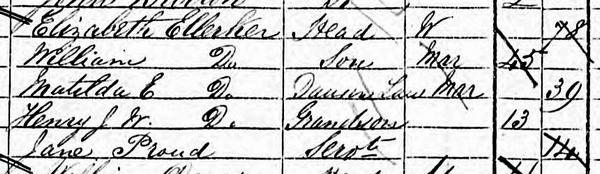 Elizabeth Ellerker Head W 78
William Do Son Mar 45
Matilda E Do Daur in Law Mar 39
Henry J. W. Do Grandson 13
Jane Proud Servt 14